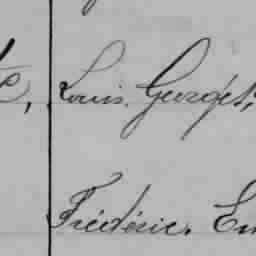 Louis Georges,
Frédéric. Em